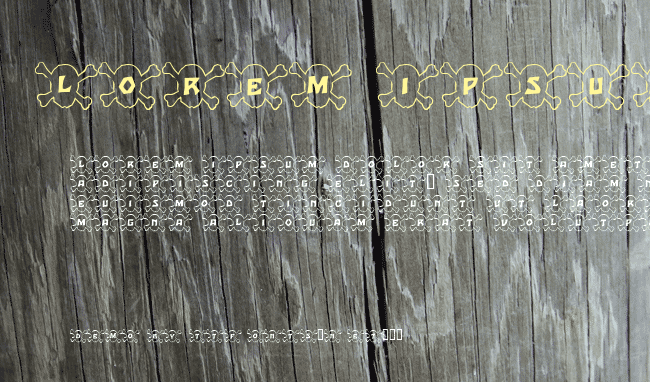 LOREM IPSU
LOREM IPSUM DOLOR SIT AMET
ADIPISCING ELIT SED DIAM N
EUISMOD TINCIDUNT UT LAOR
MAGNA ALIQUAM ERAT VOLUTP
DEMO